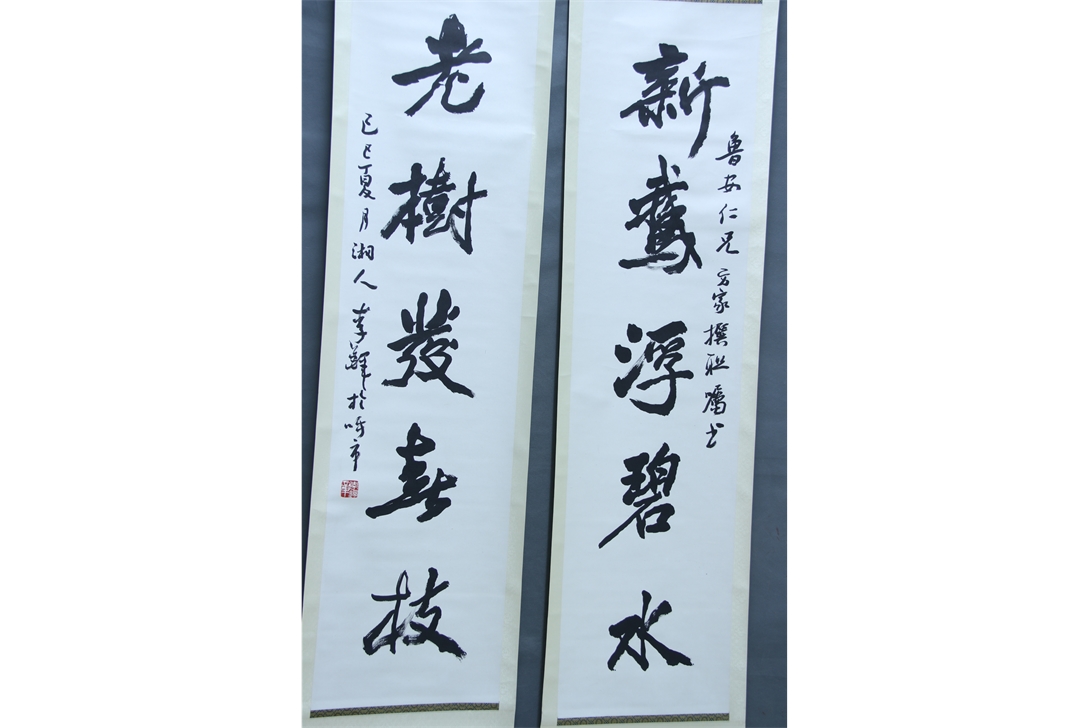 魯安仁兄方家撰联囑书
新鵞浮碧水
老樹發春枝
己巳夏月湘人李鐸於呼市